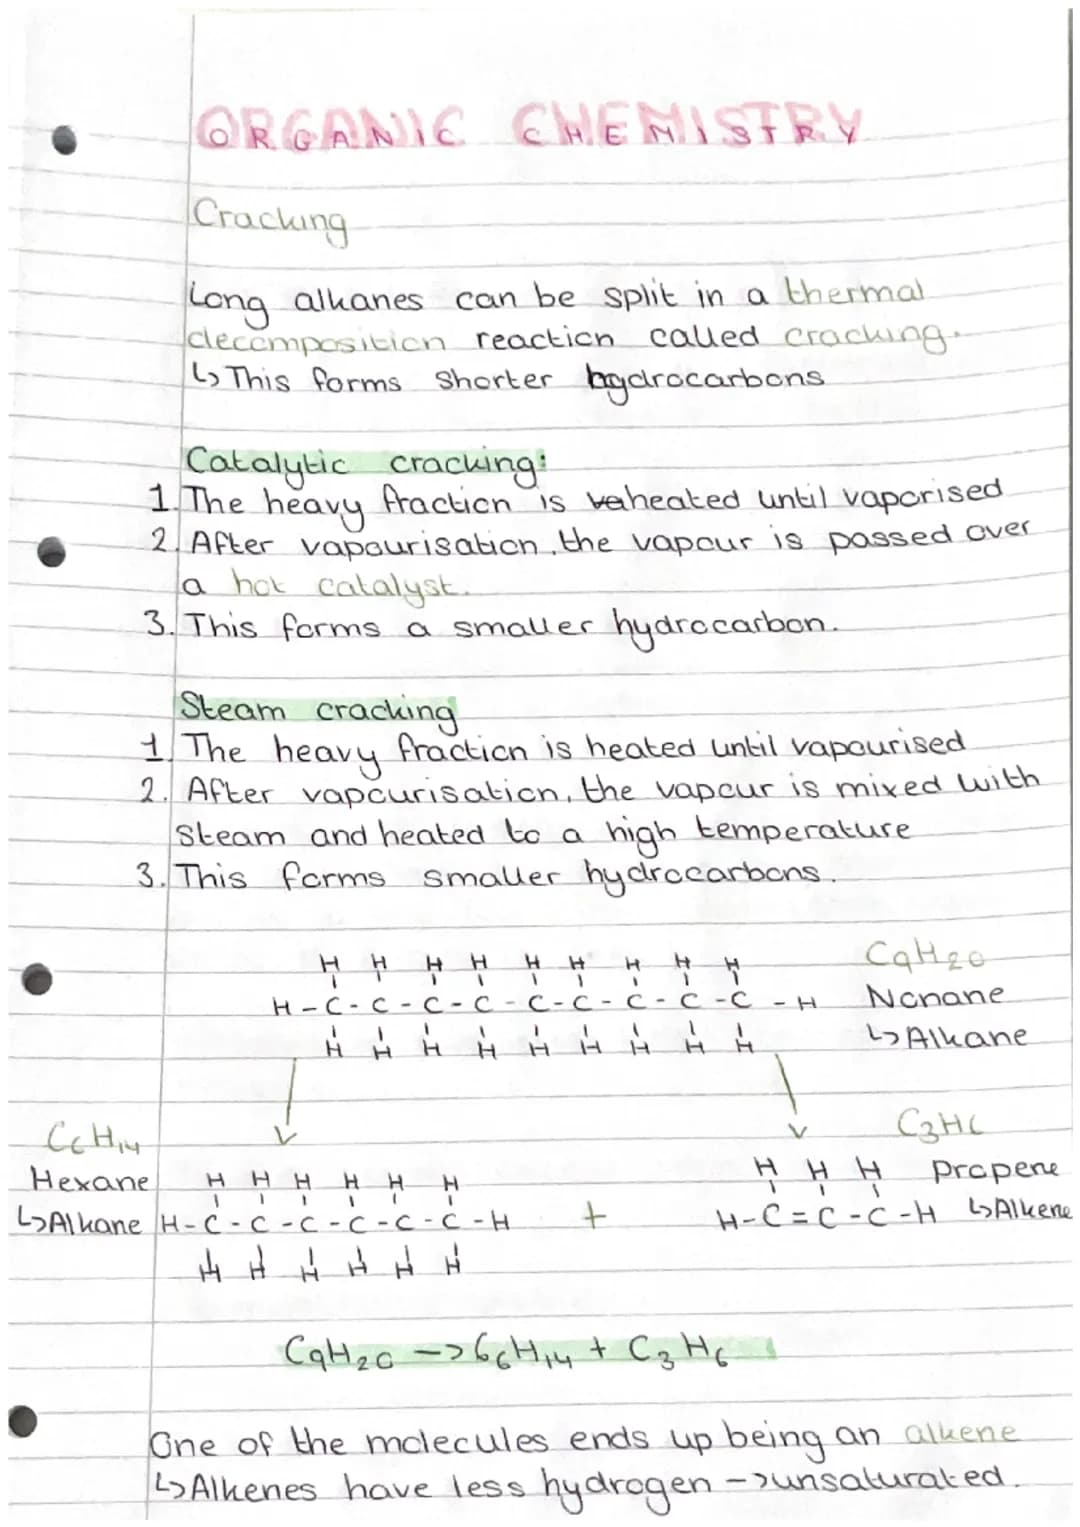 ORGANIC CHEMISTRY
Cracking
Long alkanes can be split in a thermal
decomposition reaction called cracking.
↳ This forms shorter hydrocarbons
Catalytic cracking:
1. The heavy fraction is heated until vaporised
2. After vapourisation, the vapour is passed over
a hot catalyst.
3. This forms a smaller hydrocarbon.
Steam cracking
1. The heavy fraction is heated until vapourised
2. After vapourisation, the vapour is mixed with
steam and heated to a high temperature
3. This forms smaller hydrocarbons.
H H H H H H H H H C9H20
H-C-C-C-C-C-C-C-C-C-H Nonane
H H H H H H H H H ↳ Alkane
C6H14 C3H6
Hexane H H H H H H H H H propene
↳ Alkane H-C-C-C-C-C-C-H + H-C=C-C-H ↳ Alkene
H H H H H H
C9H20 -> C6H14 + C3H6
One of the molecules ends up being an alkene
↳ Alkenes have less hydrogen -> unsaturated.